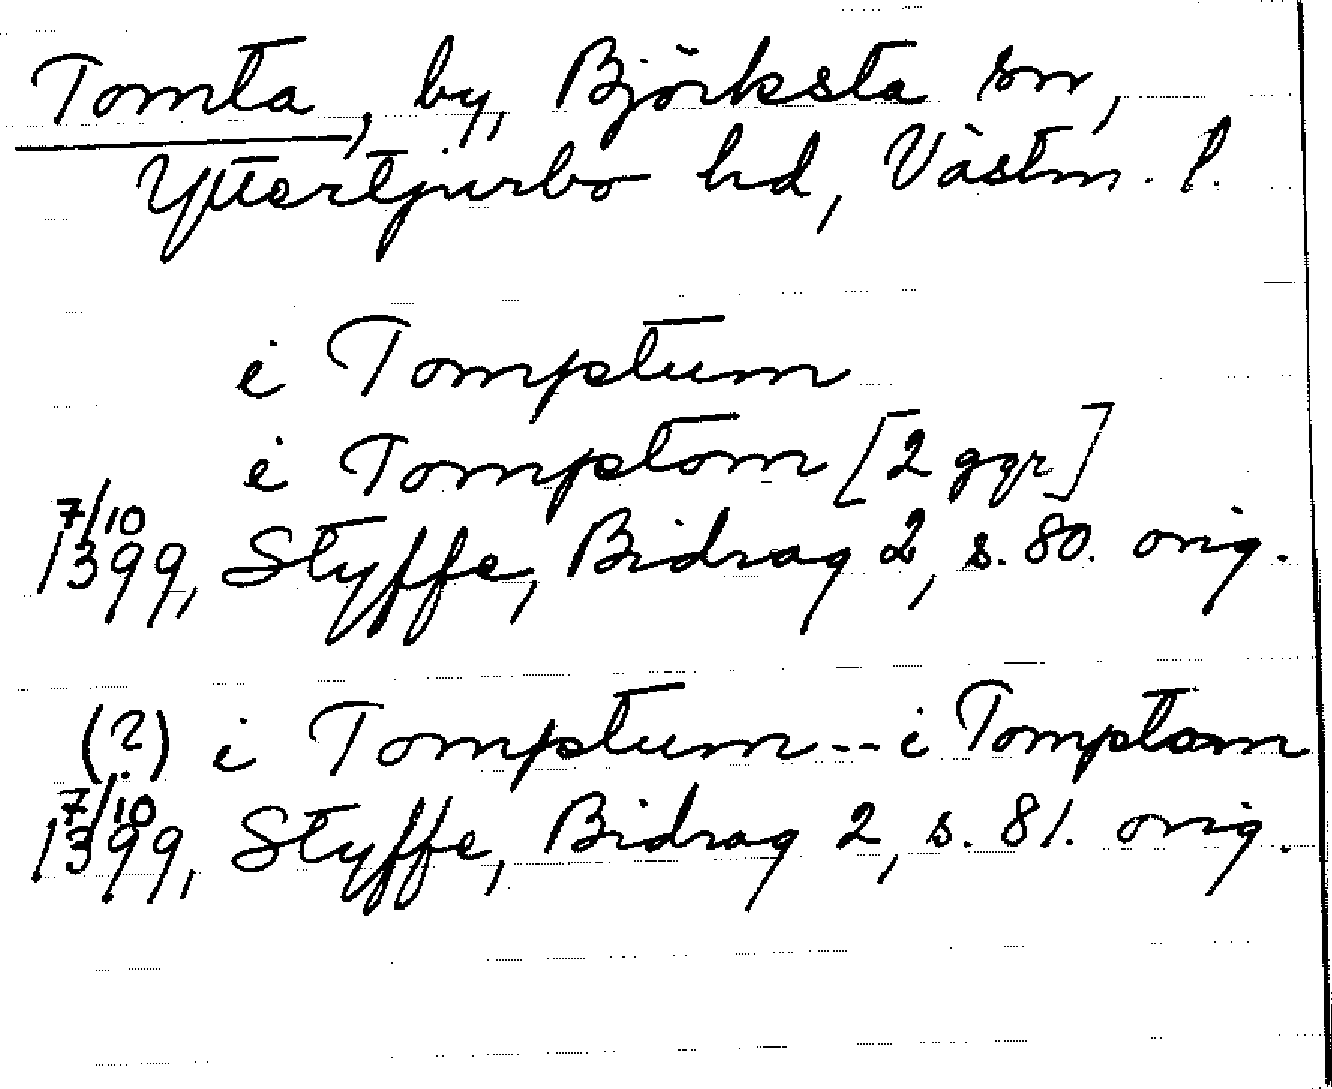 Tomta, by, Björksta sn,
Yttertjurbo hd, Västm. l.
i Tomptum
i Tomptom [2 ggr]
7/10
1399, Styffe, Bidrag 2, s. 80. orig.
(?) i Tomptum -- i Tomptom
7/10
1399, Styffe, Bidrag 2, s. 81. orig.